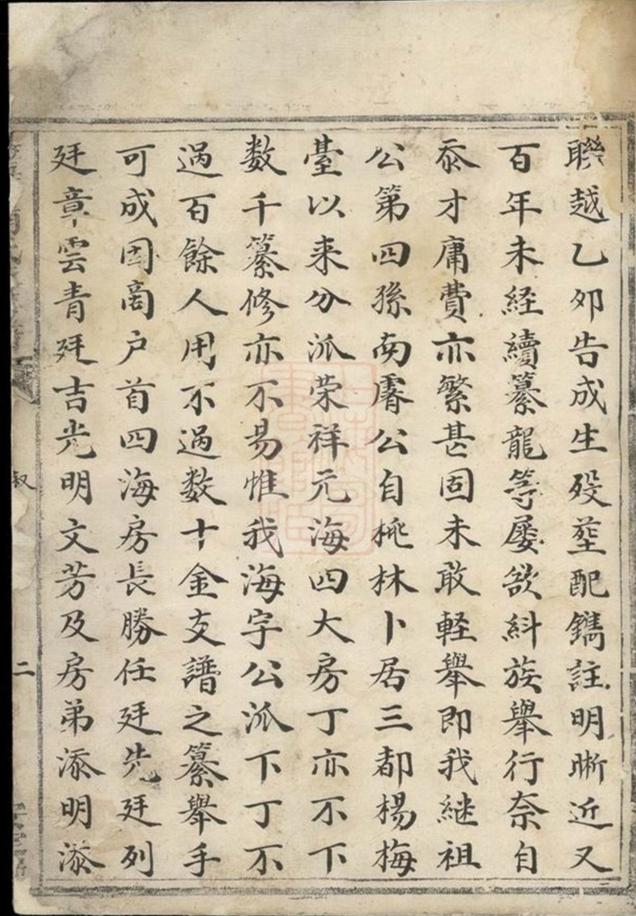 聯越乙夘告成生殁塟配鐫註明晰近又
百年未經續纂龍等屢欲糾族舉行奈自
忝才庸費亦繁甚固未敢軽舉即我継祖
公第四孫南睿公自桃林卜居三都楊梅
臺以来分派荣祥元海四大房丁亦不下
数千纂修亦不易惟我海字公派下丁不
過百餘人用不過数十金支譜之纂舉手
可成因商户首四海房長勝任廷先廷列
廷章雲青廷吉光明文芳及房弟添明添
叙
二